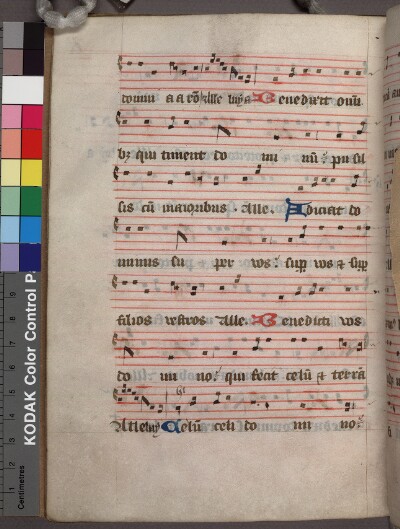 domini a a co alle luya Benedixit omi
bz qui timent do mi nū pusil
sis cū maioribus. alle. Adiciat do
minus su per vos. sup vos & sup
filios vestros alle. Benedicti vos
do mi no. qui fecit celū & terrā
Alleluy Celū celi do mi no.
KODAK Color Control P
Centimetres